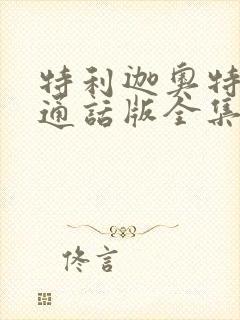 特利迦奥特
通話版全集
佟言